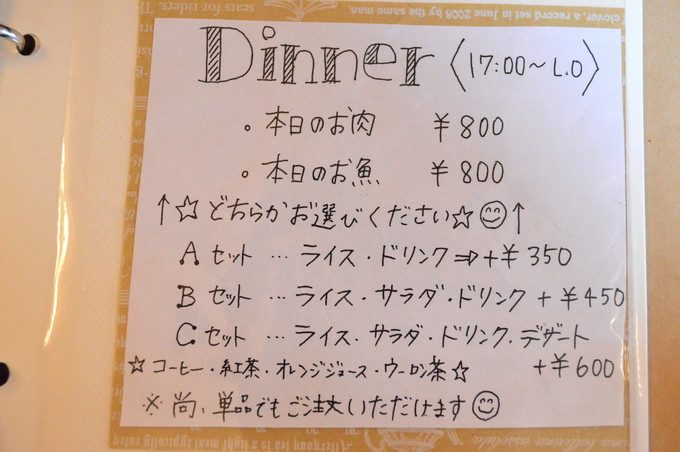 scats for riders.
clover, a record set in June 2008 by the same man.
Dinner 〈17:00～L.O〉
。本日のお肉 ¥800
。本日のお魚 ¥800
↑☆どちらかお選びください☆☺↑
Aセット…ライス・ドリンク⇒+¥350
Bセット…ライス・サラダ・ドリンク +¥450
Cセット…ライス・サラダ・ドリンク・デザート
☆コーヒー・紅茶・オレンジジュース・ウーロン茶☆ +¥600
※尚、単品でもご注文いただけます☺